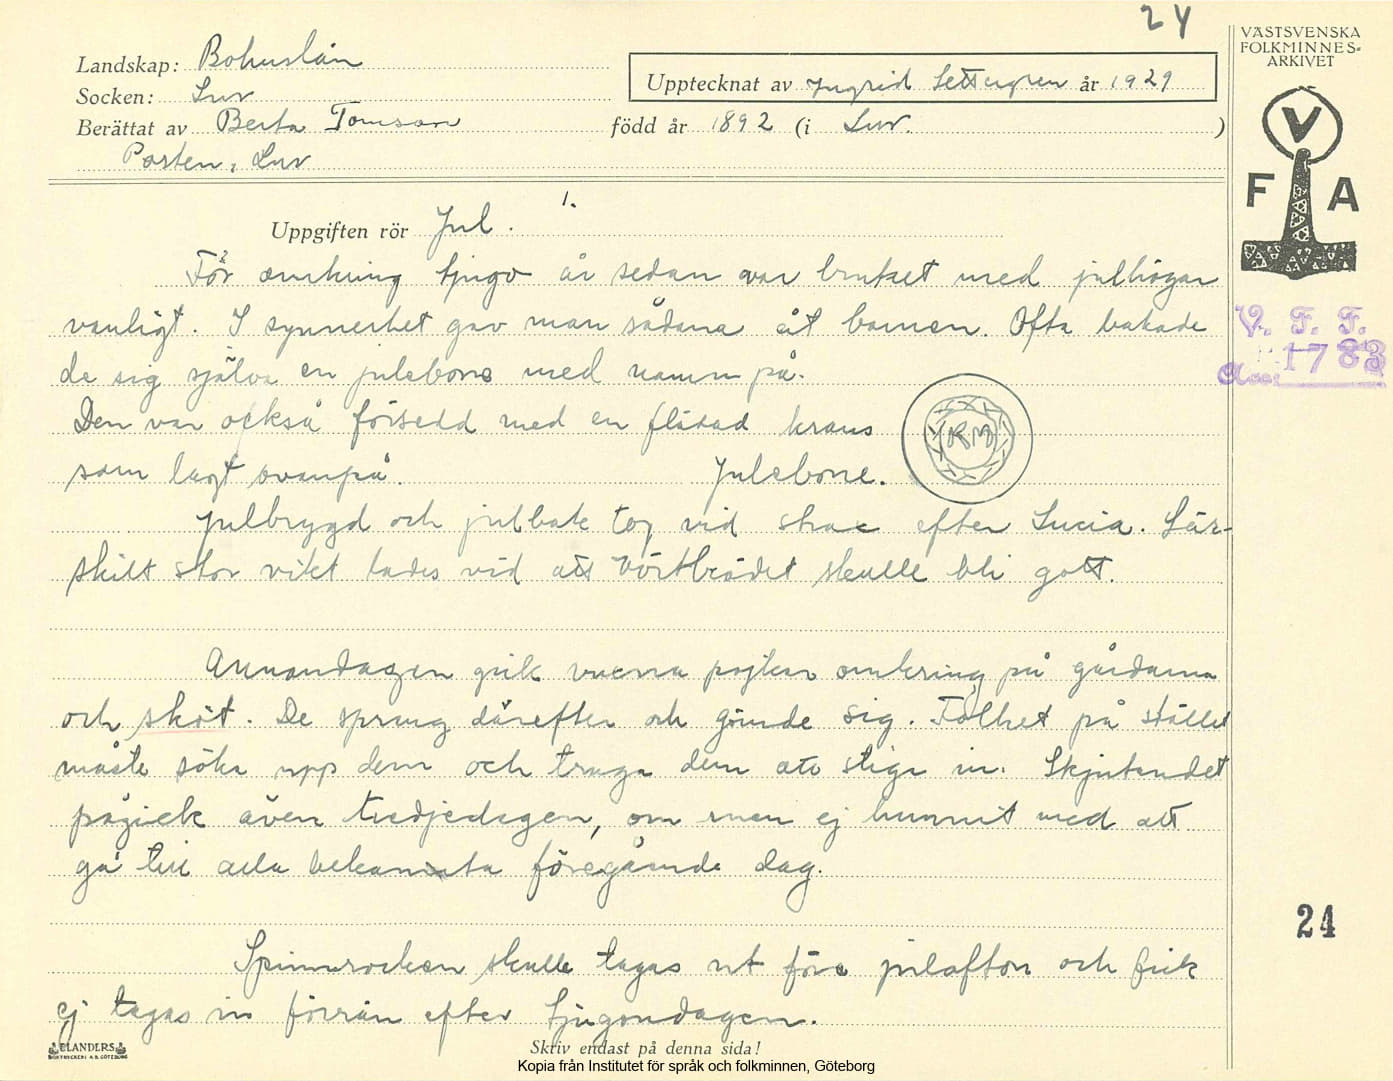 24
VÄSTSVENSKA
FOLKMINNES-
ARKIVET
Landskap: Bohuslän
Upptecknat av Ingrid Settergren år 1929
Socken: Lur
Berättat av Berta Tomson född år 1892 (i Lur. )
Posten, Lur
V
F A
1.
Uppgiften rör Jul.
För omkring tjugo år sedan var bruket med julhögar
vanligt. I synnerhet gav man sådana åt barnen. Ofta bakade
V. F. F.
de sig själva en julebone med namn på.
Acc: 1783
Den var också försedd med en flätad krans
RM
som lagt ovanpå. Julebone.
Julbrygd och julbak tog vid strax efter Lucia. Sär-
skilt stor vikt lades vid att vörtbrödet skulle bli gott.
Annandagen gick vuxna pojkar omkring på gårdarna
och sköt. De sprang därefter och gömde sig. Folket på stället
måste söka upp dem och truga dem att stiga in. Skjutandet
pågick även tredjedagen, om man ej hunnit med att
gå till alla bekanta föregående dag.
24
Spinnrocken skulle tagas ut före julafton och fick
ej tagas in förrän efter tjugondagen.
ELANDERS
BOKTRYCKERI A.B. GÖTEBORG
Skriv endast på denna sida!
Kopia från Institutet för språk och folkminnen, Göteborg